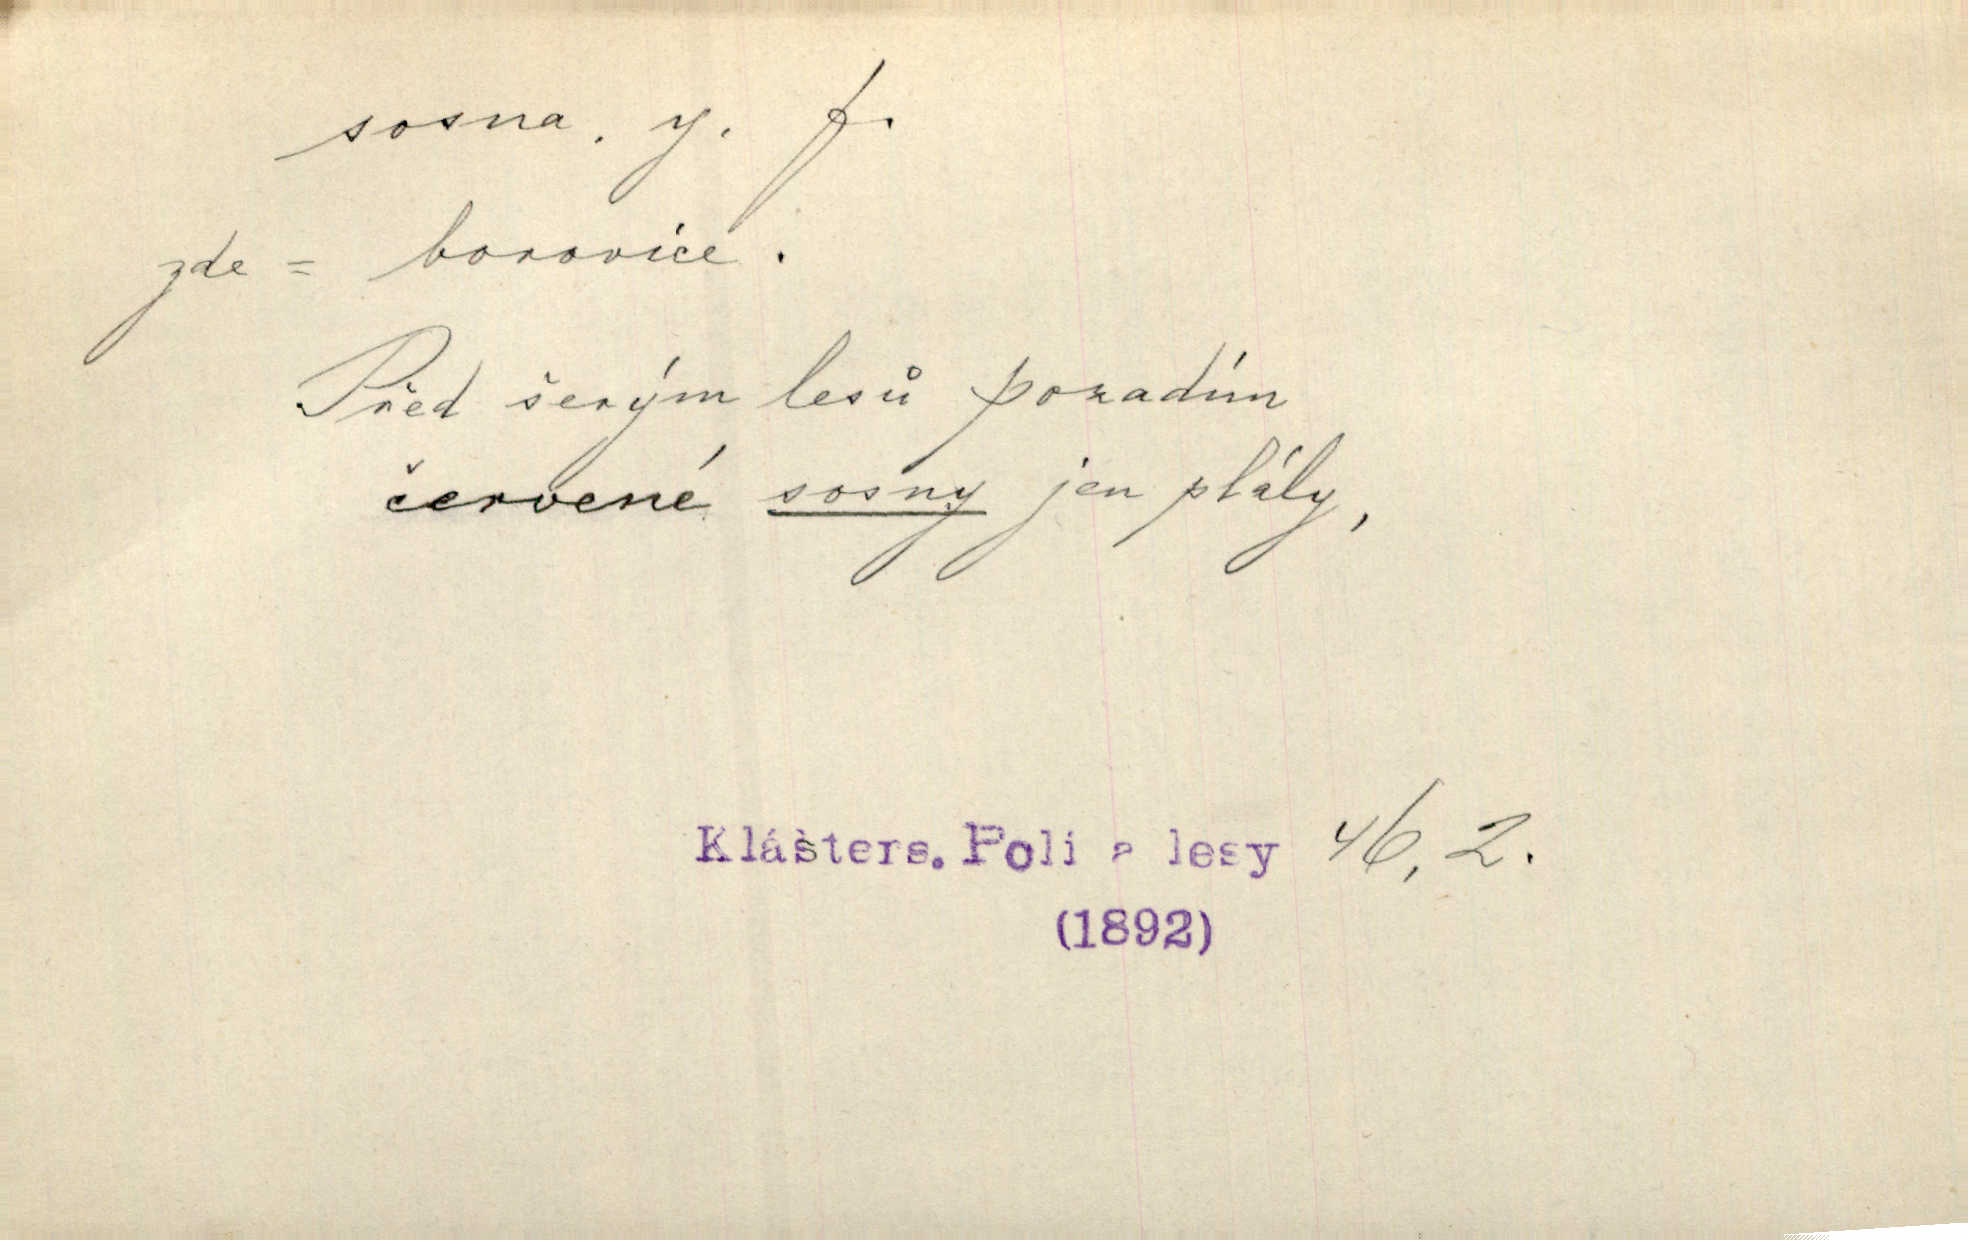 sosna. y. f.
zde = borovice.
Před šerým lesů pozadím
červené sosny jen plály,
Klášters. Polí a lesy 46, 2.
(1892)